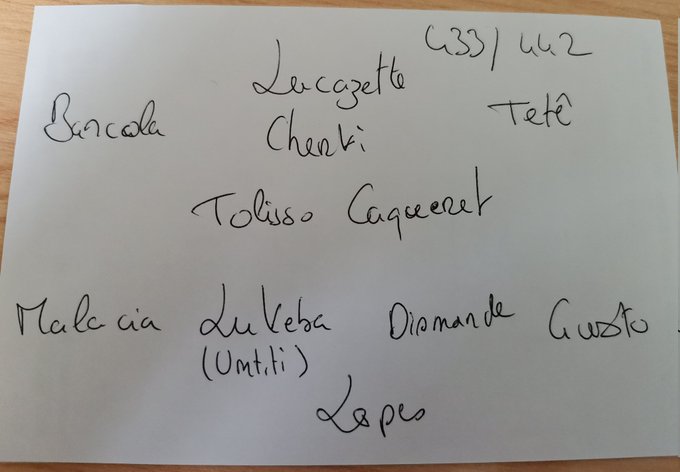 433/442
Lucazette
Barcola Tetê
Cherki
Tolisso Caqueret
Malacia Lukeba Diomande Gusto
(Umtiti)
Lopes